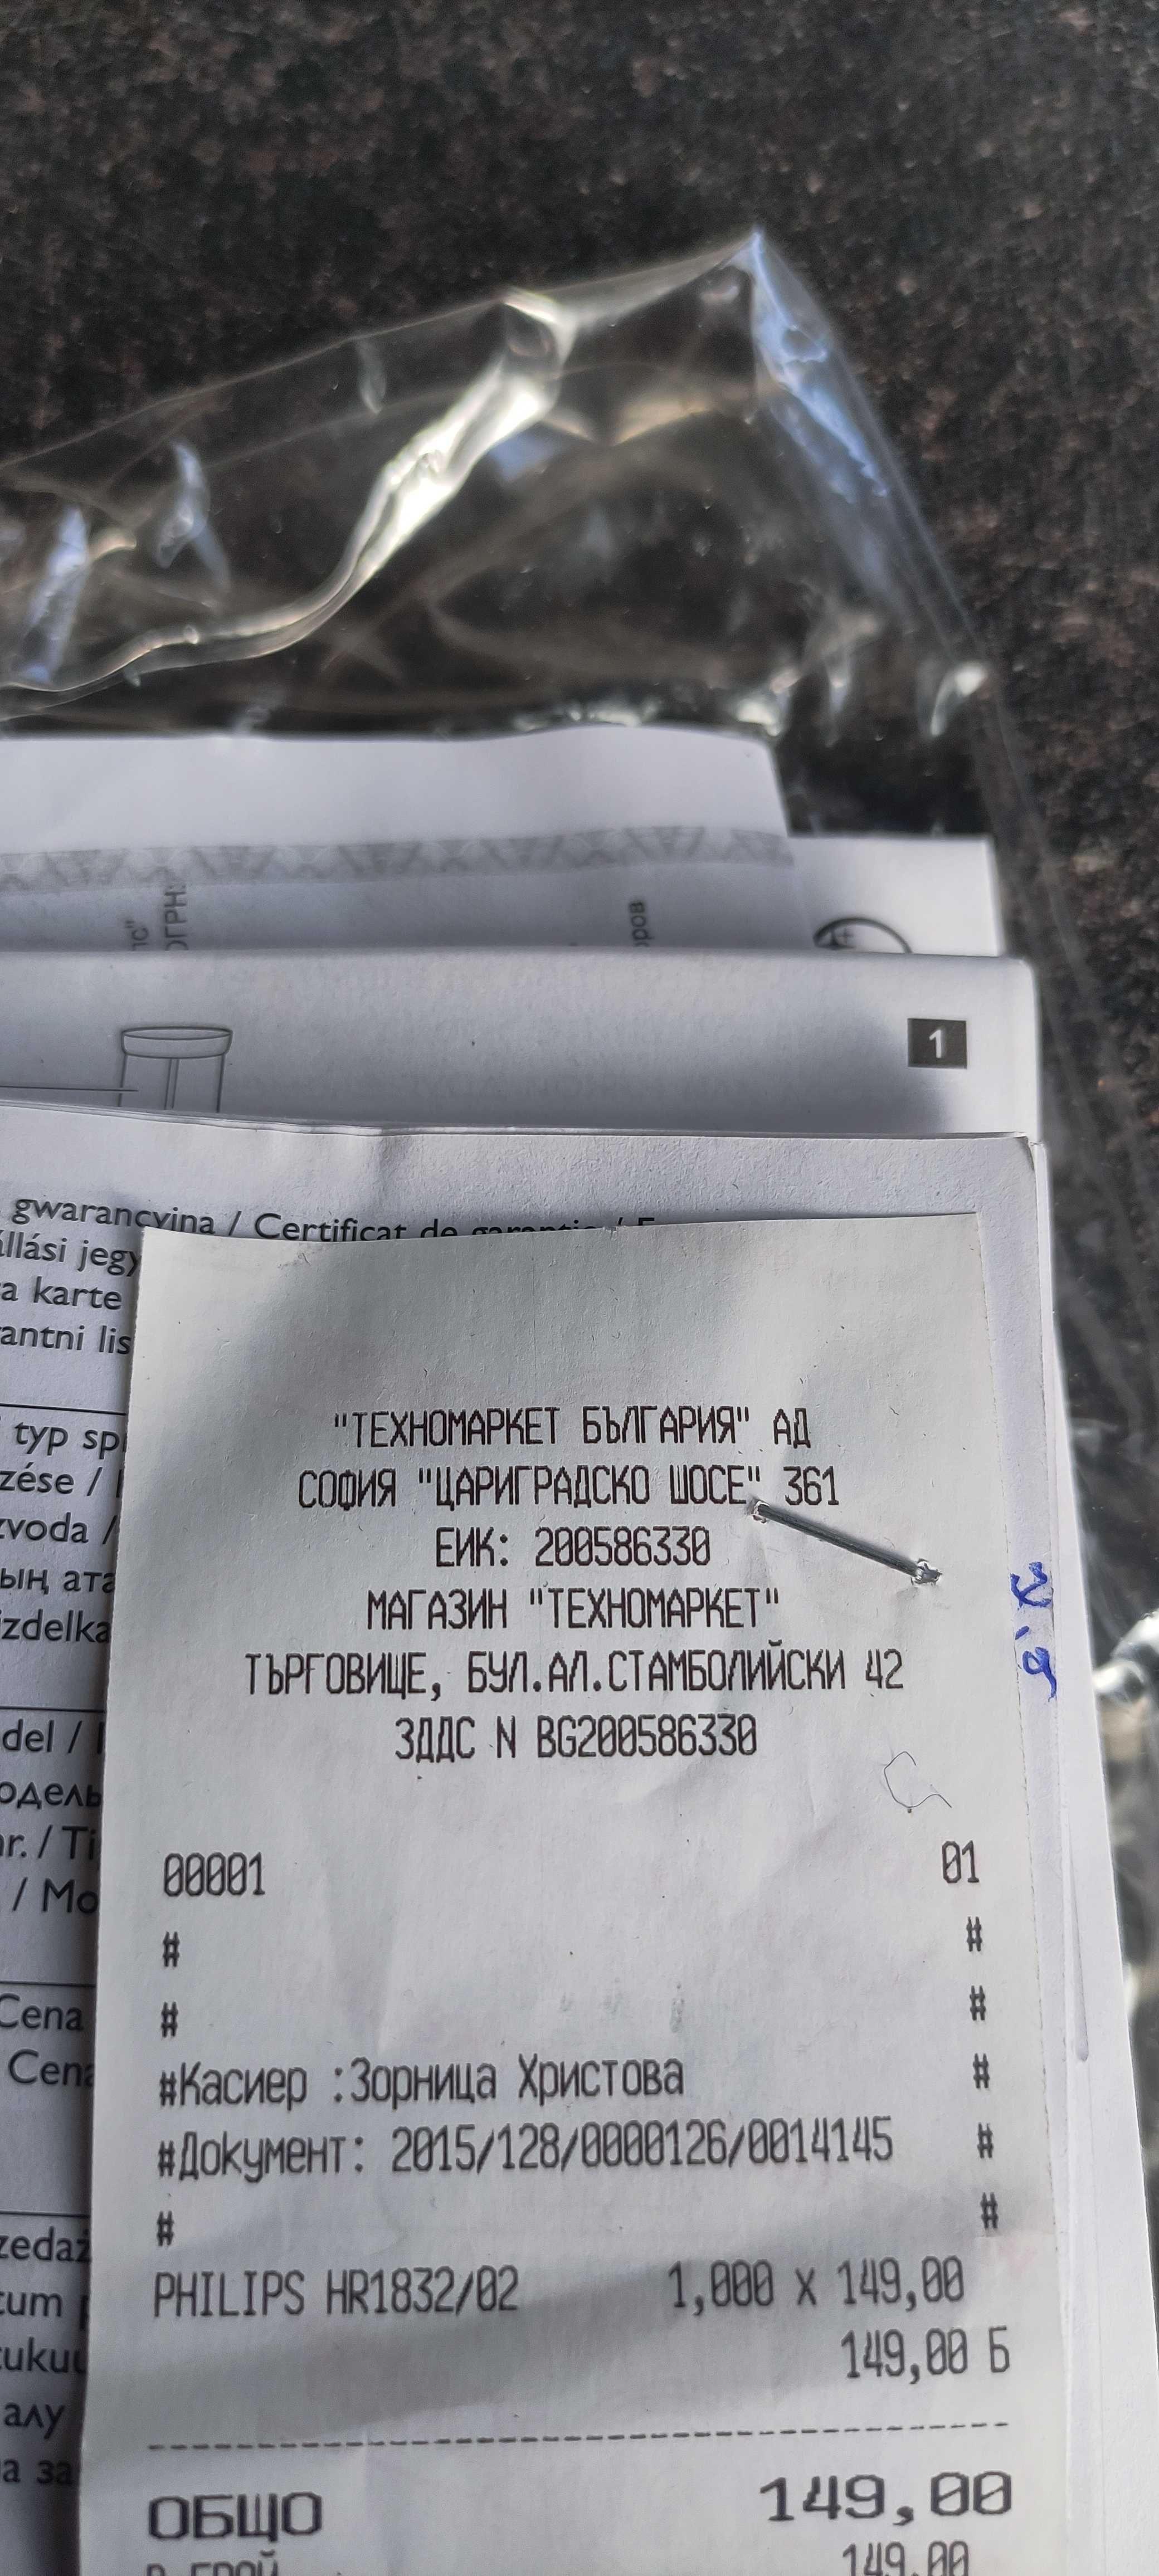 ОГРН:
1
gwarancyjna / Certificat de garantie /
állási jegy
a karte
antni lis
typ sp
zése /
zvoda /
ың ата
izdelka
"ТЕХНОМАРКЕТ БЪЛГАРИЯ" АД
СОФИЯ "ЦАРИГРАДСКО ШОСЕ" 361
ЕИК: 200586330
МАГАЗИН "ТЕХНОМАРКЕТ"
ТЪРГОВИЩЕ, БУЛ.АЛ.СТАМБОЛИЙСКИ 42
ЗДДС N BG200586330
del /
одель
nr. / Ti
/ Mo
Cena
Cena
00001 01
# #
# #
#Касиер :Зорница Христова #
#Документ: 2015/128/0000126/0014145 #
# #
PHILIPS HR1832/02 1,000 x 149,00
149,00 Б
ОБЩО 149,00
В БРОЙ 149,00
zedaż
tum
ukuu
алу
а за